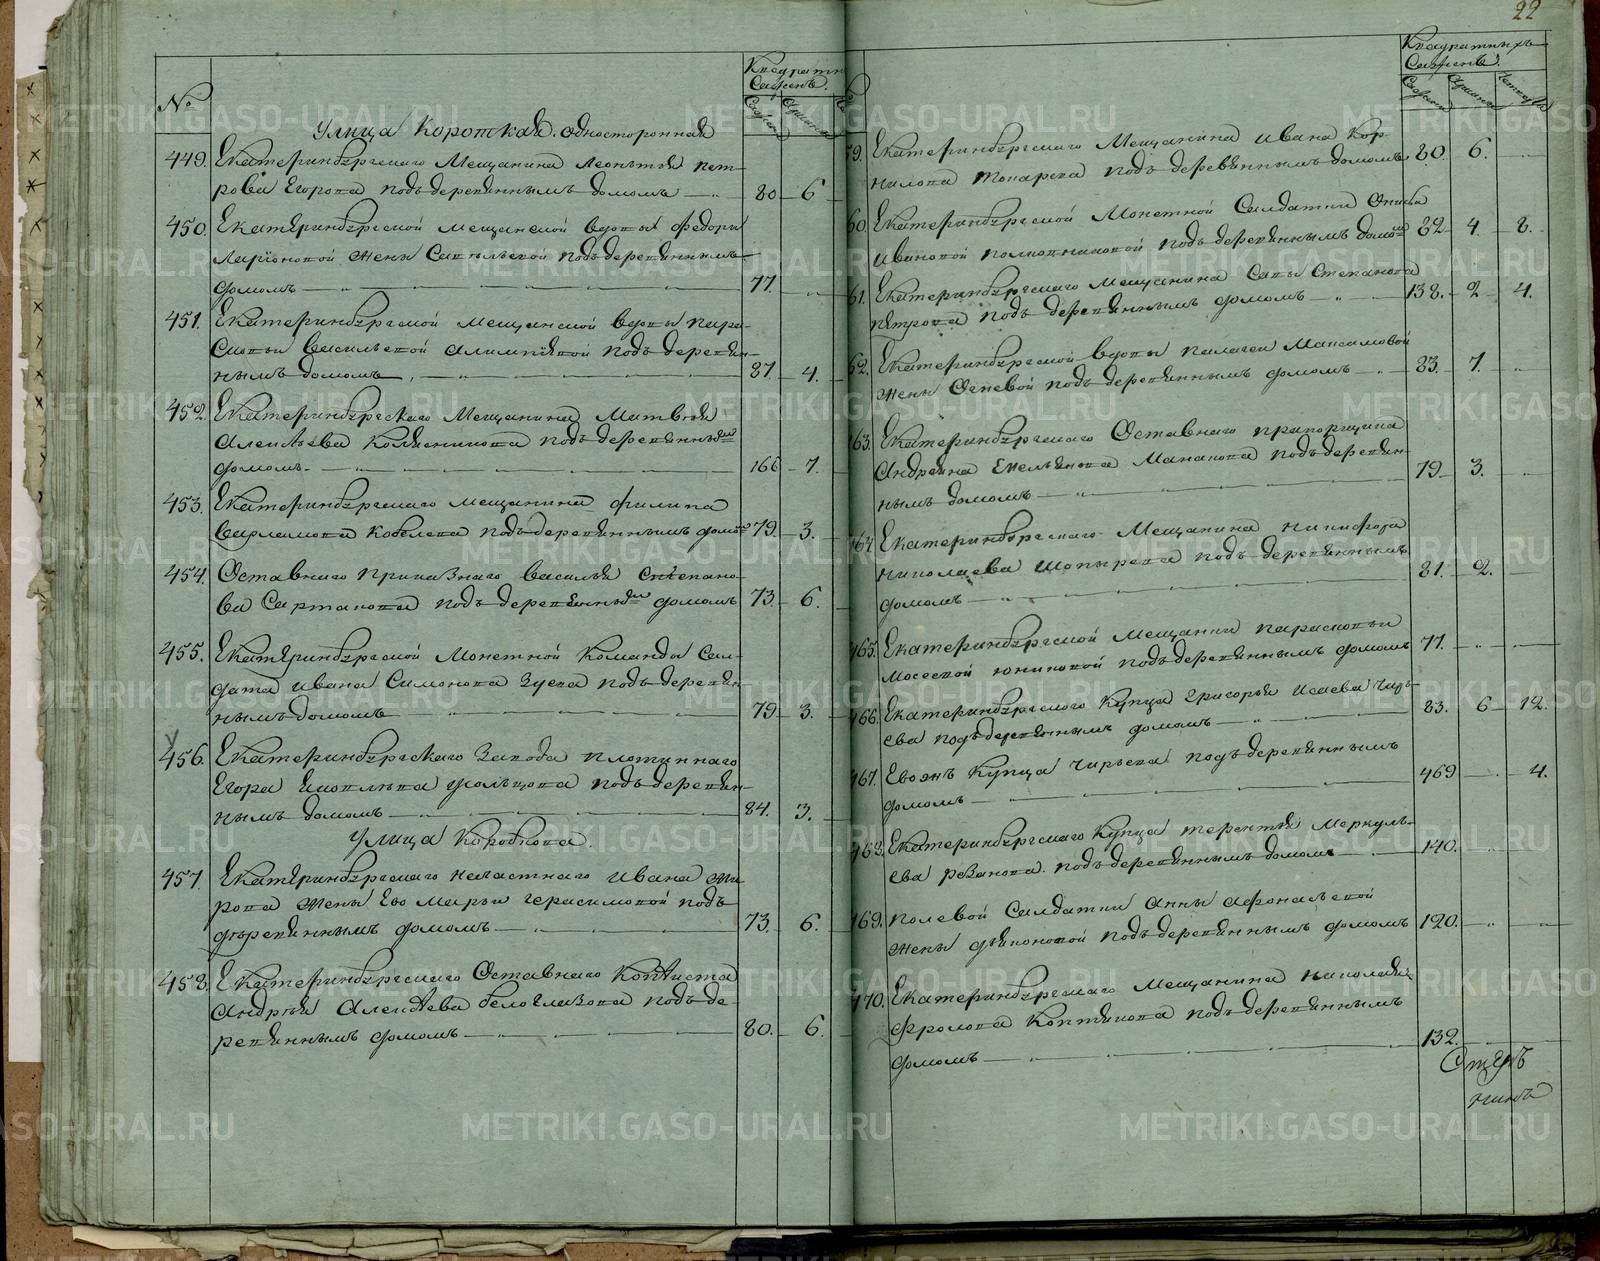 22
№
Квадратн
Сажень.
Сажени
Аршины
Улица Короткая. односторонная
449. Екатеринбургскаго Мещанина Леонтия Пет-
рова Егорова подъ деревяннымъ домомъ — 80 6
450. Екатеринбургской мещанской вдовы Федоры
Ларионовой жены подъ деревяннымъ
домомъ — 77
451. Екатеринбургской Мещанской вдовы Пара-
сковьи Васильевой подъ деревян-
нымъ домомъ — 87 4.
452. Екатеринбургскаго Мещанина Матвея
Алексеева Колясникова подъ деревяннымъ
домомъ. — 166 7.
453. Екатеринбургскаго мещанина Филипа
Варламова Кобелева подъ деревяннымъ домомъ 79. 3.
454. Оставнаго приказнаго Василья Степано-
ва Сартакова подъ деревяннымъ домомъ 73. 6.
455. Екатеринбургской Монетной Команды Сал-
дата Ивана Симонова Зуева подъ деревян-
нымъ домомъ — 79 3.
456. Екатеринбургскаго Завода плотиннаго
Егора подъ деревян-
нымъ домомъ — 84. 3.
Улица Коробкова.
457. Екатеринбургскаго Ивана
рова жены Ево Марьи Герасимовой подъ
деревяннымъ домомъ — 73. 6.
458. Екатеринбургскаго Оставнаго Копииста
Андрея Алексеева Белоглазова подъ де-
ревяннымъ домомъ — 80. 6.
Квадратныхъ
Сажень.
Сажени
Аршины
Четверти
59. Екатеринбургскаго Мещанина Ивана Кор-
нилова Токарева подъ деревяннымъ домомъ 80. 6.
60. Екатеринбургской Монетной Салдатки
Ивановой подъ деревяннымъ домомъ 82 4. 8.
61. Екатеринбургскаго Мещанина Савы Степанова
Петрова подъ деревяннымъ домомъ — 138. 2 4.
62. Екатеринбургской вдовы Палагеи Максимовой
жены Огневой подъ деревяннымъ домомъ — 83. 7.
63. Екатеринбургскаго Оставнаго прапорщика
Андреяна Емельянова Манакова подъ деревян-
нымъ домомъ — 79 3.
64. Екатеринбургскаго Мещанина Никифора
Николаева подъ деревяннымъ
домомъ — 81. 2.
465. Екатеринбургской Мещанки Парасковьи
подъ деревяннымъ домомъ 77.
466. Екатеринбургскаго Купца Григорья Исаева Чирь-
ева подъ деревяннымъ домомъ — 83. 6 12.
467. Евожъ Купца Чирьева подъ деревяннымъ
домомъ — 469 4.
468. Екатеринбургскаго Купца Терентия Меркуль-
ева Резанова. подъ деревяннымъ домомъ — 140.
469. Полевой Салдатки Анны Афонасьевой
жены подъ деревяннымъ домомъ 120.
470. Екатеринбургскаго Мещанина Николая
Фролова Коптякова подъ деревяннымъ
домомъ — 132.